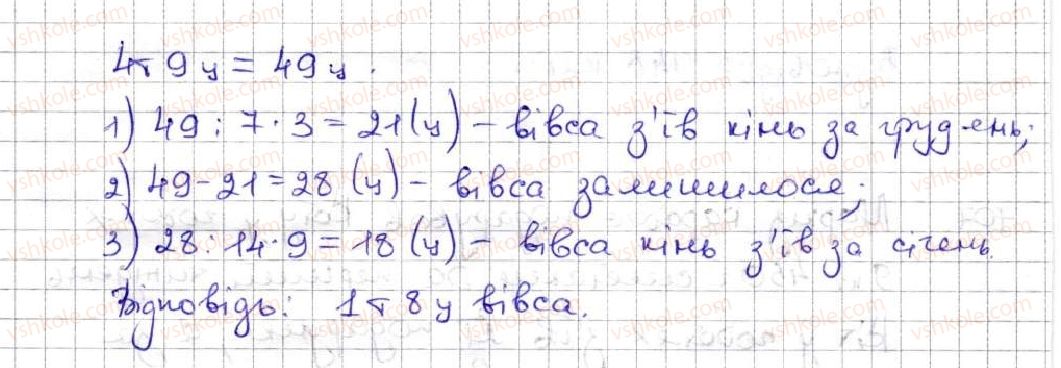 4т 9ц = 49ц.
1) 49 : 7 · 3 = 21 (ц) – вівса з'їв кінь за грудень;
2) 49 - 21 = 28 (ц) – вівса залишилося;
3) 28 : 14 · 9 = 18 (ц) – вівса кінь з'їв за січень.
Відповідь: 1т 8ц вівса.